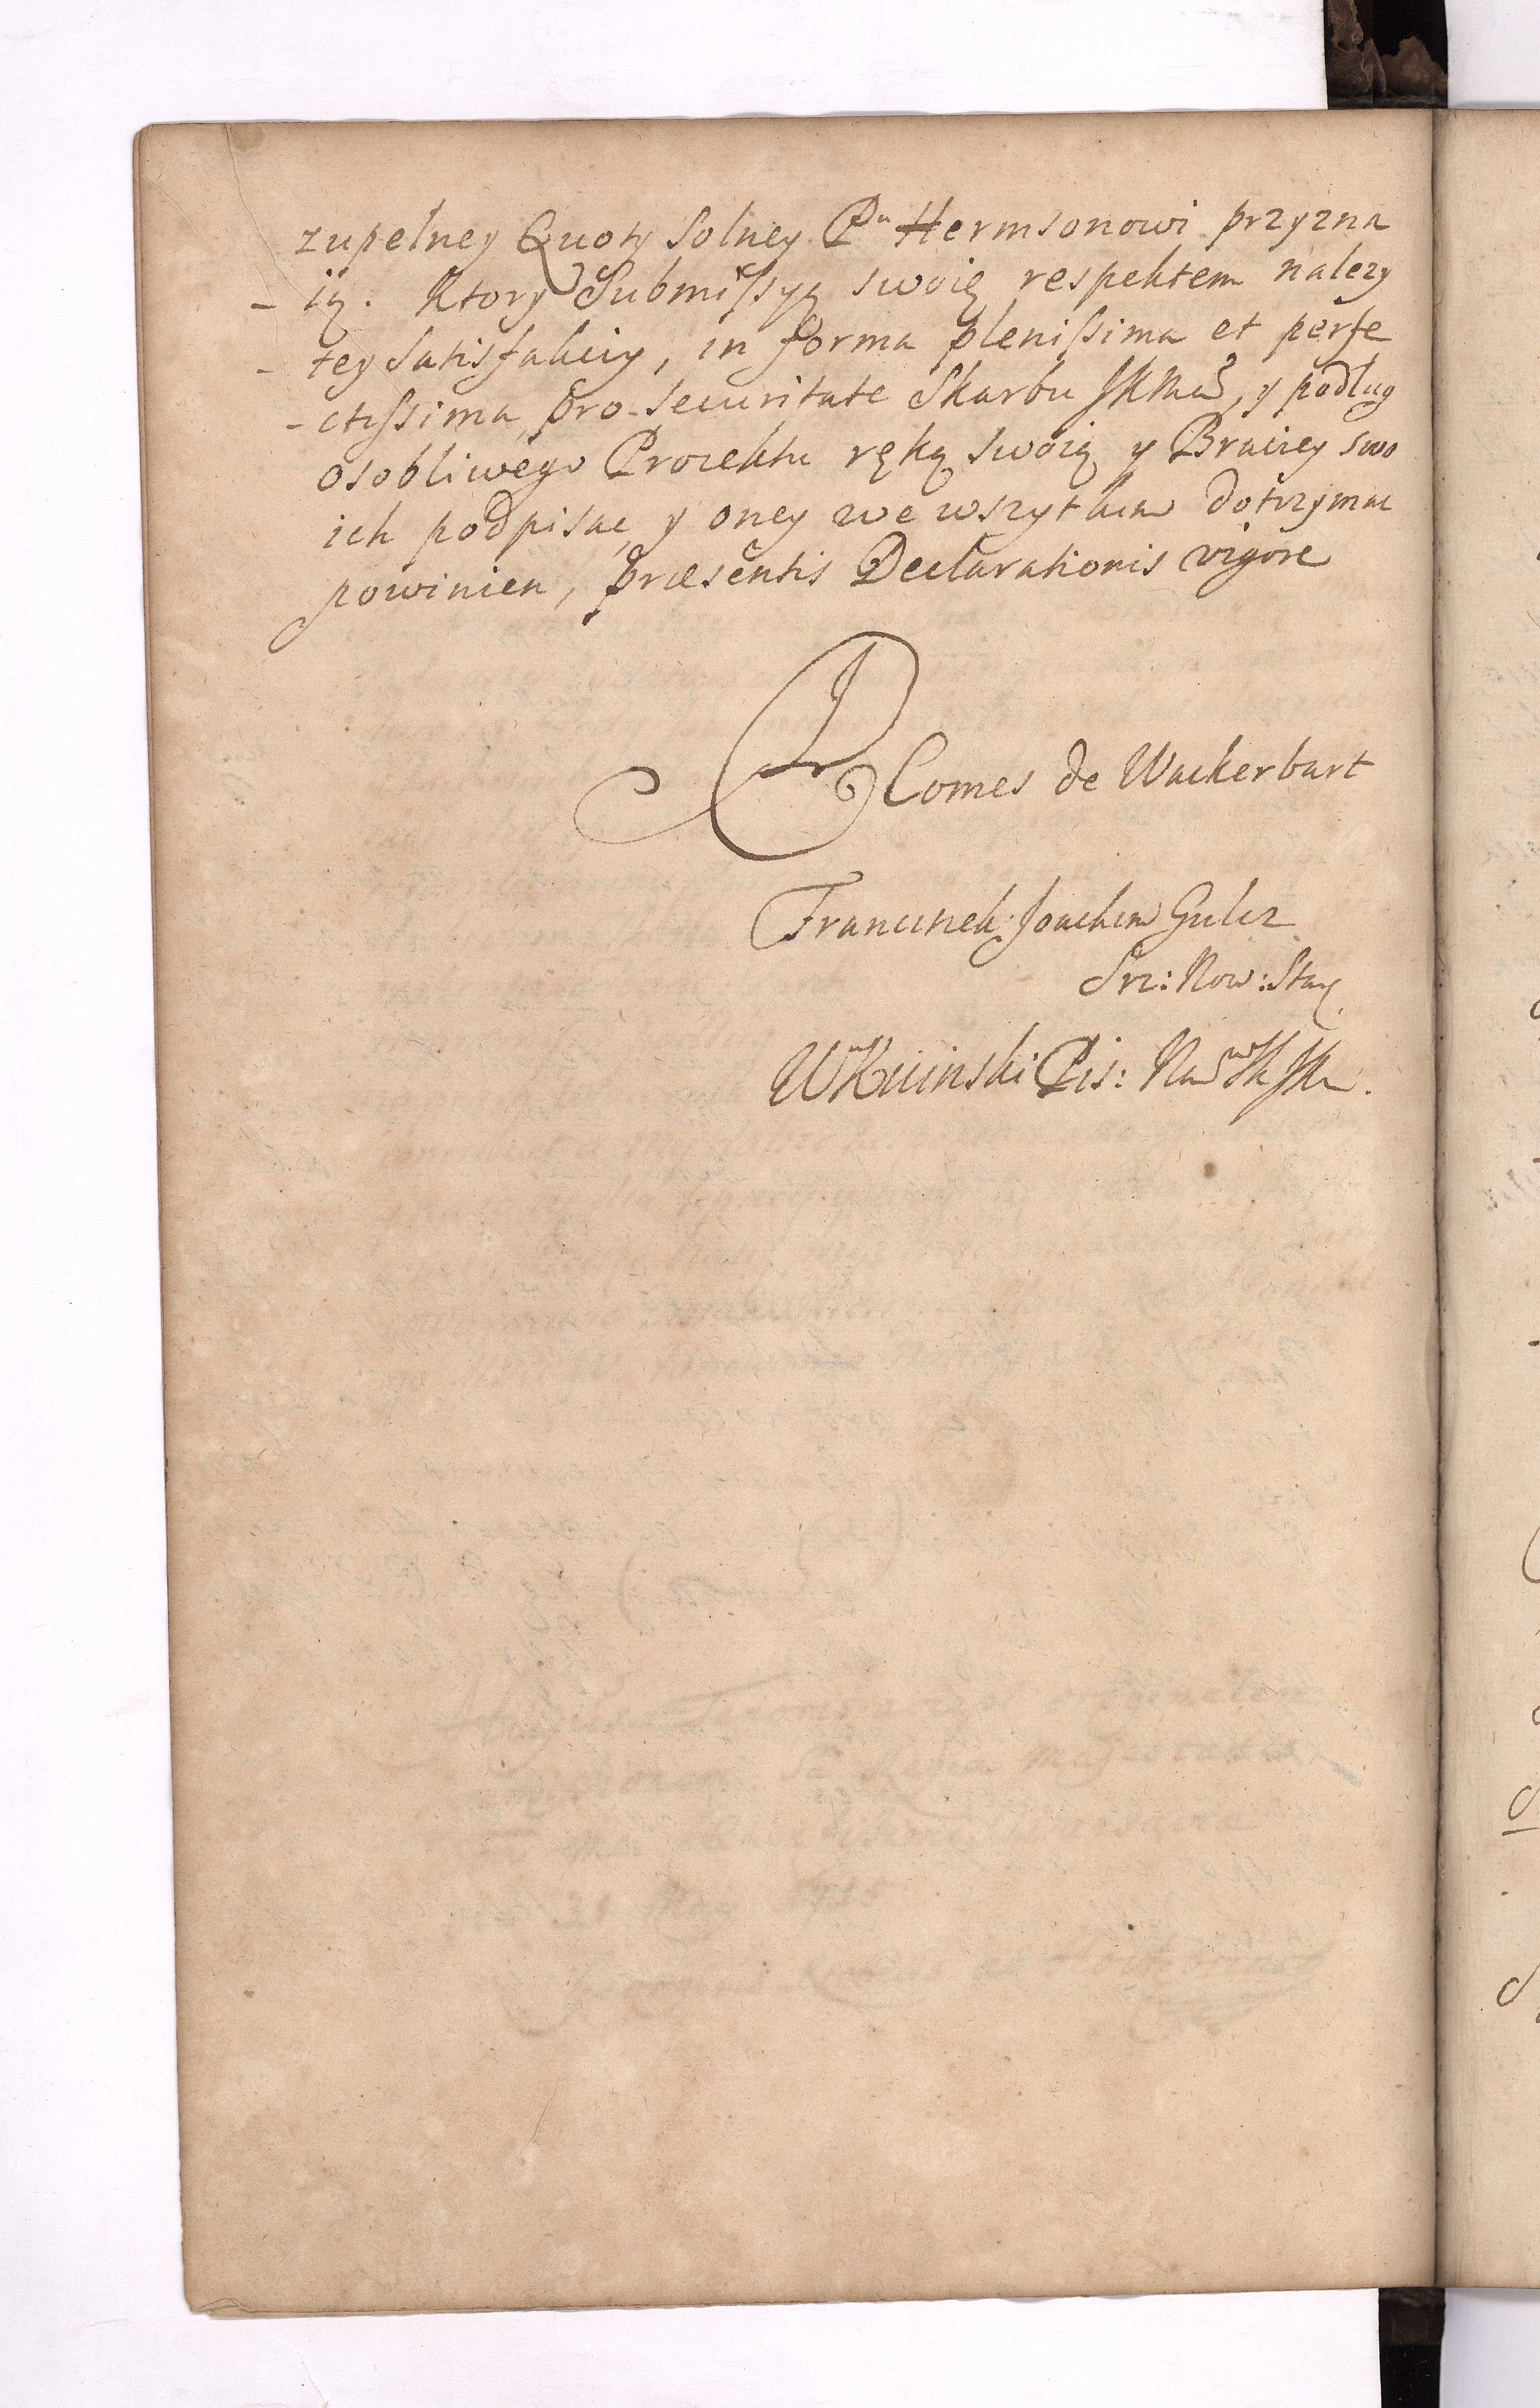 zupełney Quoty Solney Pu Hermsonowi przyzna
- ią. Ktory Submissyą swoię respektem nalezy
- tey Satisfakciy, in forma plenissima et perfe
- ctissima, pro Securitate Skarbu JKMci, y podług
osobliwego Proiektu ręką swoią y Braciey swo
ich podpisac, y oney we wszytkim dotrzymac
powinien, præsentis Declarationis vigore
Comes de Wackerbart
Franciszek Joachim Gulcz
Srz: Now: Stary
WKicinski Pis: